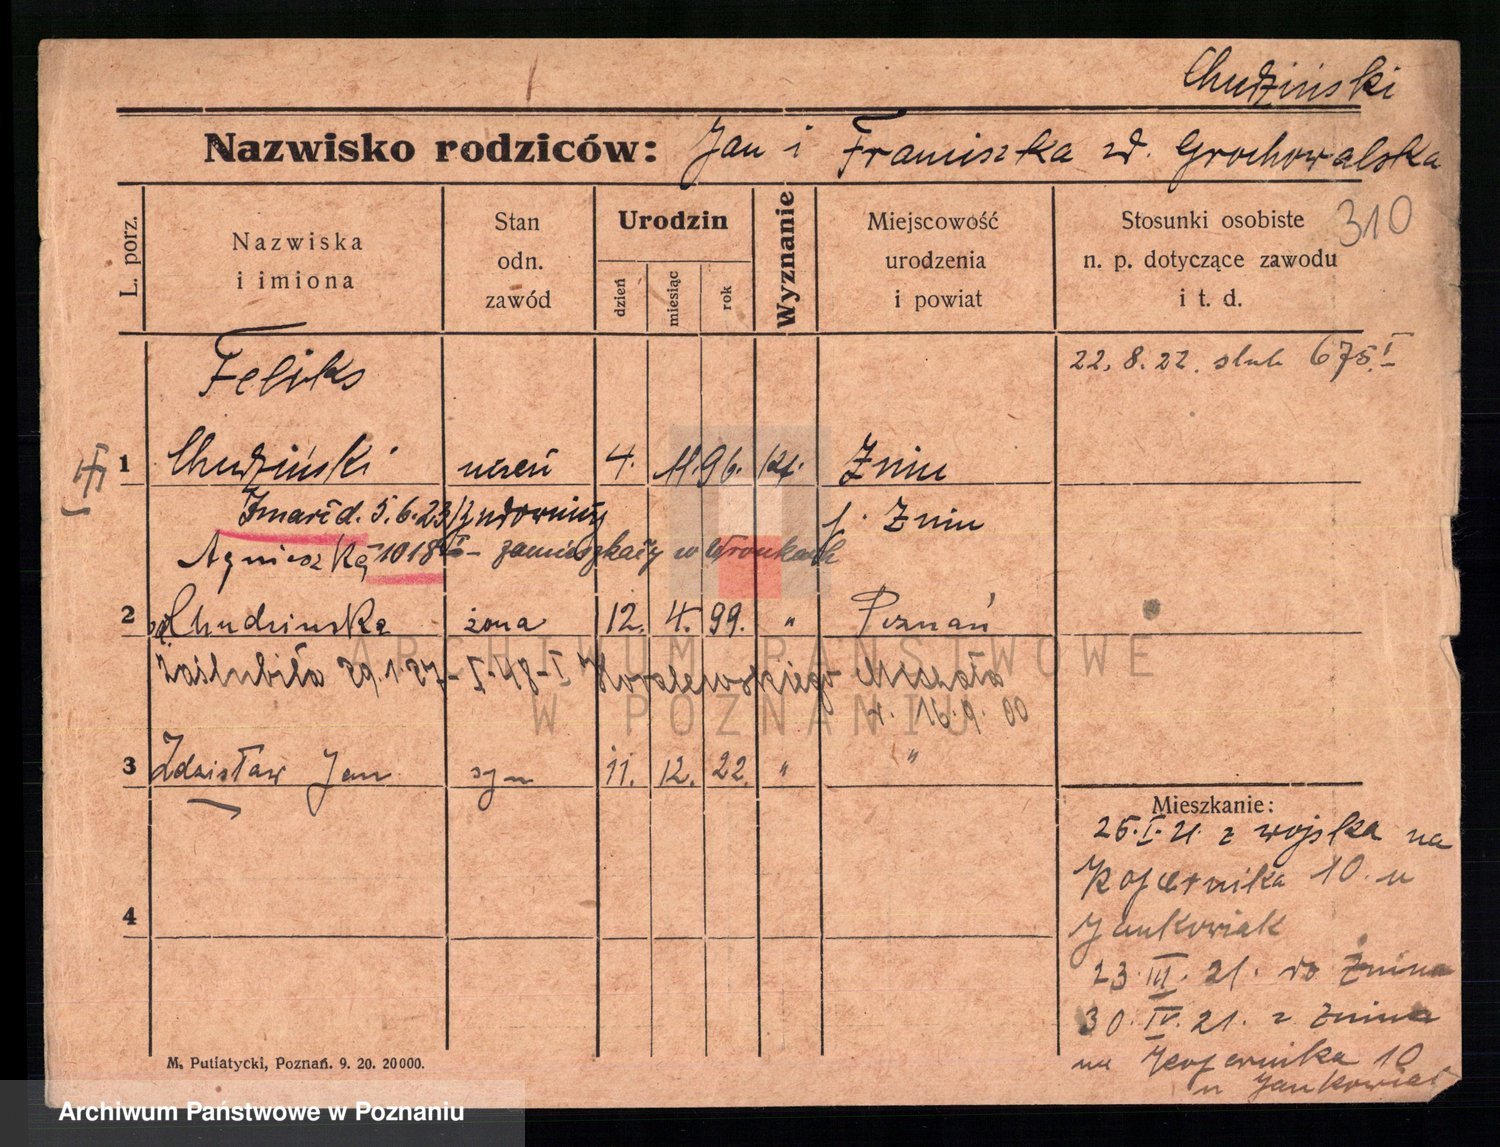 Chudziński
Nazwisko rodziców: Jan i Franciszka zd. Grochowalska
310
L. porz.
Nazwiska i imiona
Stan odn. zawód
Urodzin
dzień
miesiąc
rok
Wyznanie
Miejscowość urodzenia i powiat
Stosunki osobiste n. p. dotyczące zawodu i t. d.
Feliks
22. 8. 22. ślub 675.I
1 Chudziński uczeń 4. 11. 96. kat. Żnin
Zmarł d. 5.6.23 p. Żnin
Agnieszką 1018 zamieszkały w Wronkach
2 Chudzińska żona 12. 4. 99. " Poznań
Zaślubiła
3 Zdzisław Jan syn 11. 12. 22. " "
4
Mieszkanie:
26.I.21. z wojska na
Kopernika 10. u
Jankowiak
23.III.21. do Żnina
30.IV.21. z Żnina
na Kopernika 10
u Jankowiak
M. Putiatycki, Poznań. 9. 20. 20000.
ARCHIWUM PAŃSTWOWE
W POZNANIU
Archiwum Państwowe w Poznaniu